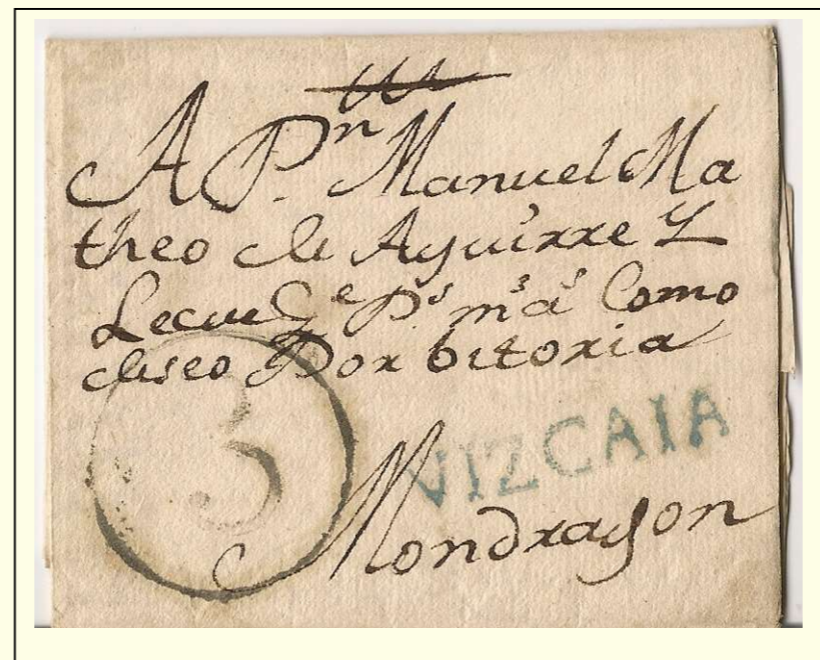 A Dn. Manuel Ma
theo de Aguirre Y
Lecue Ge Ds ms as Como
deseo Por bitoria
3
VIZCAIA
Mondragon